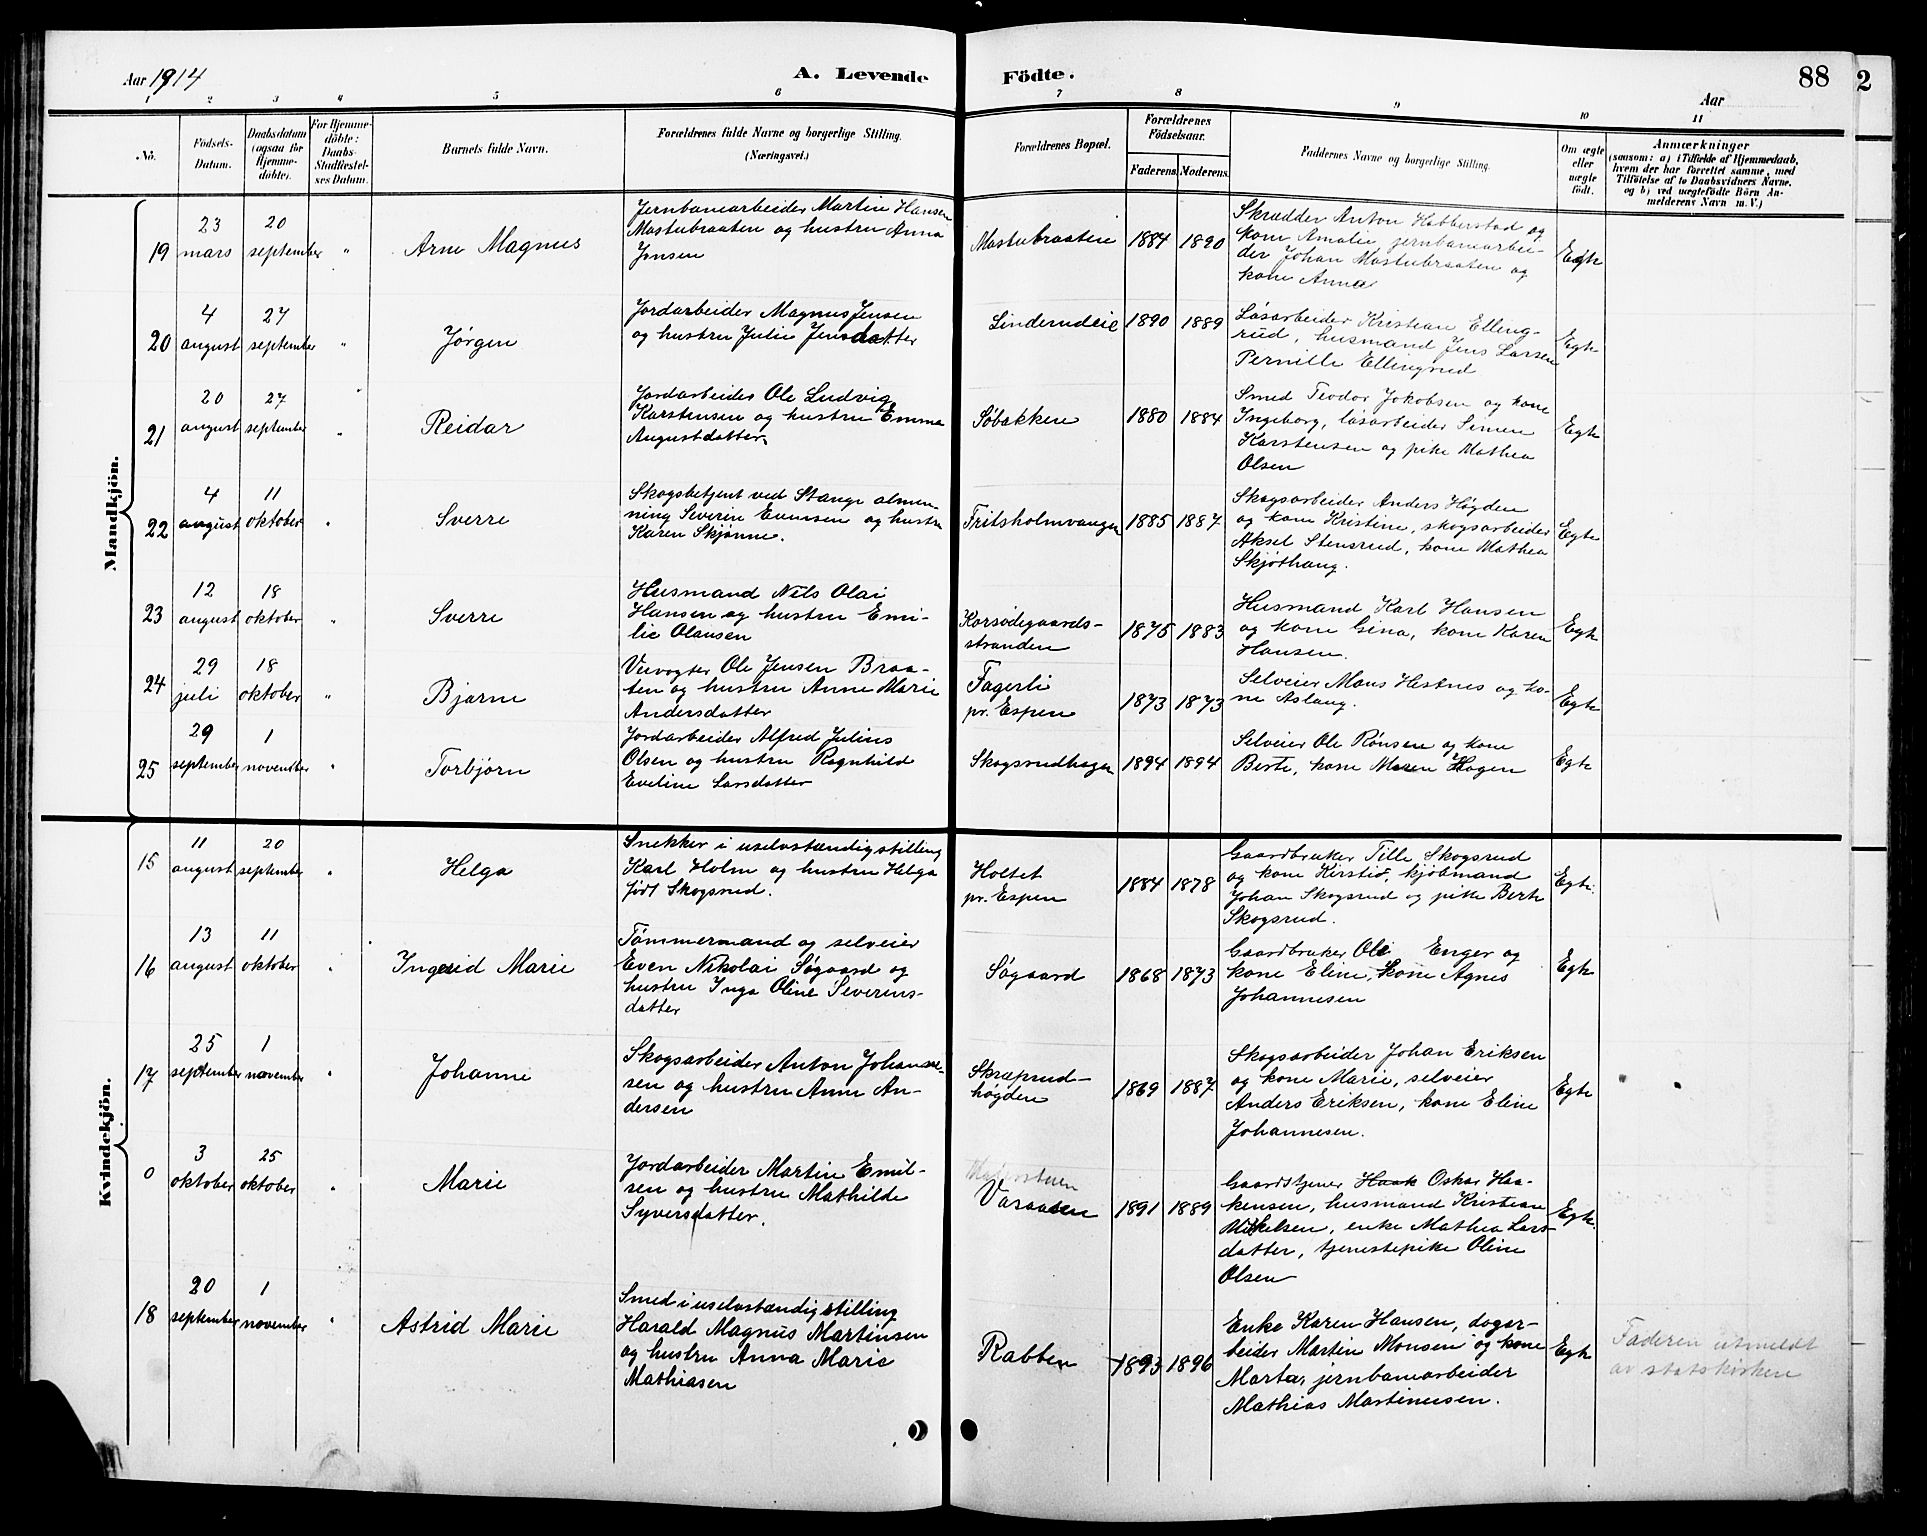 Aar 1914
A. Levende Födte.
88
2
Aar
1 2 3 4 5 6 7 8 9 10 11
No.
Födsels-
Datum.
Daabsdatum
(ogsaa for
Hjemme-
döbte).
For Hjemme-
döbte:
Daabs-
Stadfæstel-
ses Datum.
Barnets fulde Navn.
Forældrenes fulde Navne og borgerlige Stilling.
(Næringsvei.)
Forældrenes Bopæl.
Forældrenes
Födselsaar.
Faderens. Moderens.
Faddernes Navne og borgerlige Stilling.
Om ægte
eller
uægte
födt.
Anmærkninger
(saasom: a) i Tilfælde af Hjemmedaab,
hvem der har forrettet samme, med
Tilföielse af to Daabsvidners Navne.
og b) ved uægtefödte Börn An-
melderens Navn m. V.)
Mandkjön.
19
23
mars
20
september
"
Arne Magnus
Jernbanearbeider Martin Hansen
Mastubraaten og hustru Anna
Jensen
Mastubraaten
1884
1890
Skrædder Anton Habberstad og
kone Amalie, jernbanearbei-
der Johan Mastubraaten og
kone Anna
Egte
20
4
august
27
september
"
Jørgen
Jordarbeider Magnus Jensen
og hustru Julie Jensdatter
Linderudeie
1890
1889
Løsarbeider Kristian Elling-
rud, husmand Jens Larsen
Pernille Ellingsrud
Egte
21
20
august
27
september
"
Reidar
Jordarbeider Ole Ludvig
Karstensen og hustru Emma
Augustdatter
Søbakken
1880
1884
Smed Teodor Jokobsen og kone
Ingeborg, løsarbeider Simen
Karstensen og pike Mathea
Olsen
Egte
22
4
august
11
oktober
"
Sverre
Skogsbetjent ved Stange almen-
ning Severin Evensen og hustru
Karen Skjønne.
Fritsholmvangen
1885
1887
Skogsarbeider Anders Høgden
og kone Kristine, skogsarbeider
Aksel Stensrud, kone Mathea
Skjøthaug.
Egte
23
12
august
18
oktober
"
Sverre
Husmand Nils Olai
Hansen og hustru Emi-
lie Olausen
Korsødegaards-
stranden
1875
1883
Husmand Karl Hansen
og kone Gina, kone Karen
Hansen.
Egte
24
29
juli
18
oktober
"
Bjarne
Veivogter Ole Jensen Braa-
ten og hustru Anne Marie
Andersdatter
Fagerli
pr. Espen
1873
1873
Selveier Mons Hestnes og ko-
ne Aslaug.
Egte
25
29
september
1
november
"
Torbjørn
Jordarbeider Alfred Julius
Olsen og hustru Ragnhild
Eveline Larsdatter
Skogsrudhagen
1894
1894
Selveier Ole Rønsen og kone
Berte, kone Maren Hagen
Egte
Kvindekjön.
15
11
august
20
september
"
Helga
Snekker i uselvstændig stilling
Karl Holm og hustru Helga
født Skogsrud.
Holtet
pr. Espen
1884
1878
Gaardbruker Tille Skogsrud
og kone Kirstie, kjøbmand
Johan Skogsrud og pike Berte
Skogsrud.
Egte.
16
13
august
11
oktober
"
Ingerid Marie
Tømmermand og selveier
Even Nikolai Søgaard og
hustru Inga Oline Severins-
datter
Søgaard
1868
1873
Gaardbruker Ole Enger og
kone Eline, kone Agnes
Johannesen
Egte
17
25
september
1
november
"
Johanne
Skogsarbeider Anton Johanne-
sen og hustru Anne An-
dersen
Skræprud-
høgden
1869
1887
Skogsarbeider Johan Eriksen
og kone Marie, selveier
Anders Eriksen, kone Eline
Johannesen.
Egte
0
3
oktober
25
oktober
"
Marie
Jordarbeider Martin Emil-
sen og hustru Mathilde
Syversdatter.
Varaasen
1891
1889
Gaardstjener Haak Oskar Haa-
kensen, husmand Kristian
Mikkelsen, enke Mathea Lars-
datter, tjenestepike Oline
Olsen
Egte.
18
20
september
1
november
"
Astrid Marie
Smed i uselvstændig stilling
Harald Magnus Martinsen
og hustru Anna Marie
Mathiasen
Rabben
1893
1896
Enke Karen Hansen, dagar-
beider Martin Monsen og kone
Marta, jernbanearbeider
Mathias Martinusen.
Egte
Faderen utmeldt
av statskirken